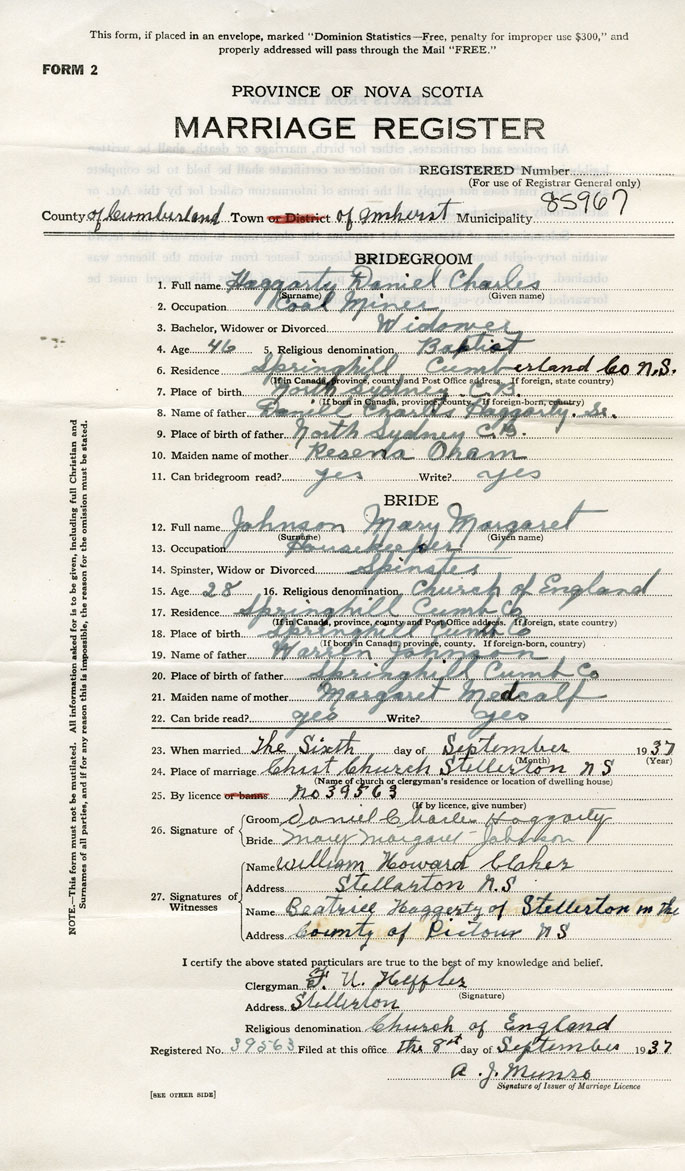 This form, if placed in an envelope, marked "Dominion Statistics—Free, penalty for improper use $300," and
properly addressed will pass through the Mail "FREE."
FORM 2
PROVINCE OF NOVA SCOTIA
MARRIAGE REGISTER
REGISTERED Number
(For use of Registrar General only)
85967
County of Cumberland Town or District of Amherst Municipality
BRIDEGROOM
1. Full name Haggarty Daniel Charles
(Surname) (Given name)
2. Occupation Coal Miner
3. Bachelor, Widower or Divorced Widower
4. Age 46 5. Religious denomination Baptist
6. Residence Springhill Cumberland Co N.S.
(If in Canada, province, county and Post Office address. If foreign, state country)
7. Place of birth North Sydney C.B.
(If born in Canada, province, county. If foreign-born, country)
8. Name of father Daniel Charles Haggarty. Sr.
9. Place of birth of father North Sydney C.B.
10. Maiden name of mother Oram
11. Can bridegroom read? yes Write? yes
BRIDE
12. Full name Johnson Mary Margaret
(Surname) (Given name)
13. Occupation Housekeeper
14. Spinster, Widow or Divorced Spinster
15. Age 28 16. Religious denomination Church of England
17. Residence Springhill Cumb Co
(If in Canada, province, county and Post Office address. If foreign, state country)
18. Place of birth Springhill Cumb Co
(If born in Canada, province, county. If foreign-born, country)
19. Name of father Warren Johnson
20. Place of birth of father Springhill Cumb Co
21. Maiden name of mother Margaret Medcalf
22. Can bride read? yes Write? yes
23. When married The Sixth day of September 1937
(Month) (Year)
24. Place of marriage Christ Church Stellerton N S
(Name of church or clergyman's residence or location of dwelling house)
25. By licence or banns No 39563
(If by licence, give number)
26. Signature of
Groom Daniel Charles Haggarty
Bride Mary Margaret Johnson
27. Signatures of Witnesses
Name William Howard
Address Stellarton N.S
Name Beatrice Haggerty of Stellerton in the
Address County of Pictou N S
I certify the above stated particulars are true to the best of my knowledge and belief.
Clergyman F. U. Heffler
(Signature)
Address Stellerton
Religious denomination Church of England
Registered No. 39563 Filed at this office the 8th day of September 1937
A. J. Munro
Signature of Issuer of Marriage Licence
[SEE OTHER SIDE]
NOTE.—This form must not be mutilated. All information asked for is to be given, including full Christian and
Surnames of all parties, and if for any reason this is impossible, the reason for the omission must be stated.